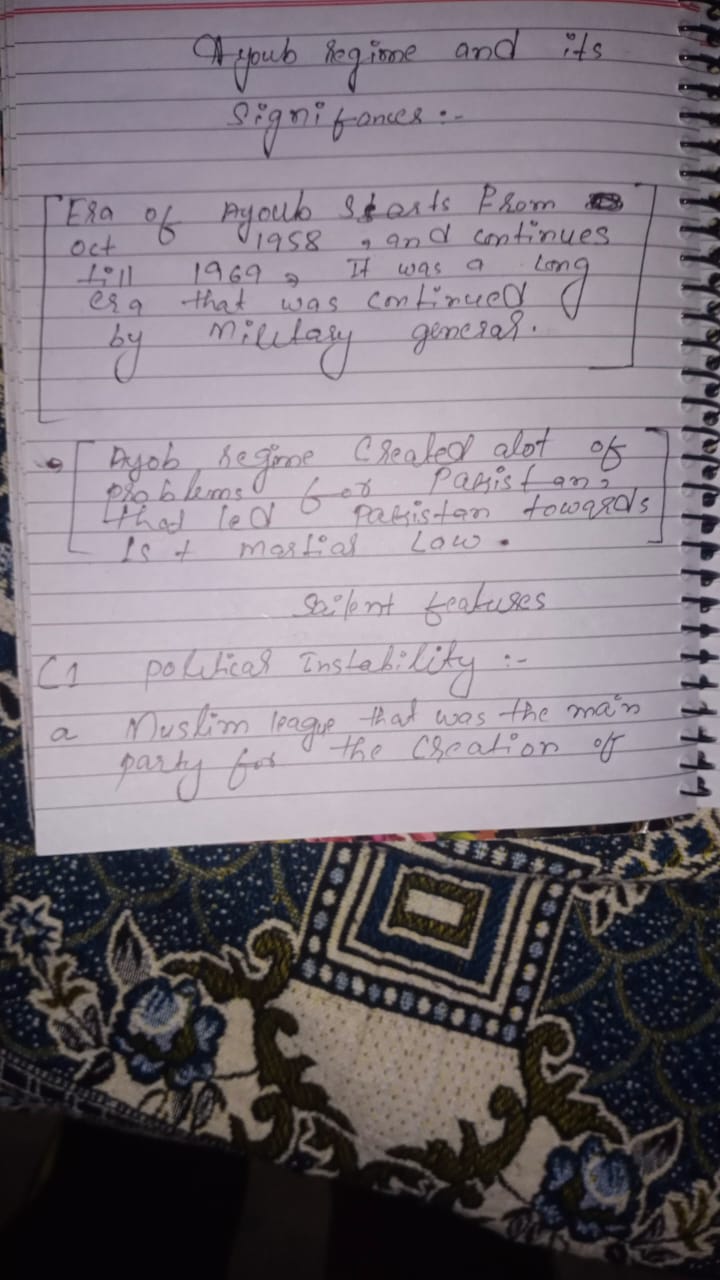 Ayoub regime and its
Signifances :-
Era of Ayoub Starts From
Oct 1958, and continues
till 1969, It was a long
era that was continued
by military general.
Ayob regime Created alot of
problems for Pakistan,
that led Pakistan towards
1st martial Law.
Sailent features
(1 political Instability :-
a Muslim league that was the main
party for the Creation of